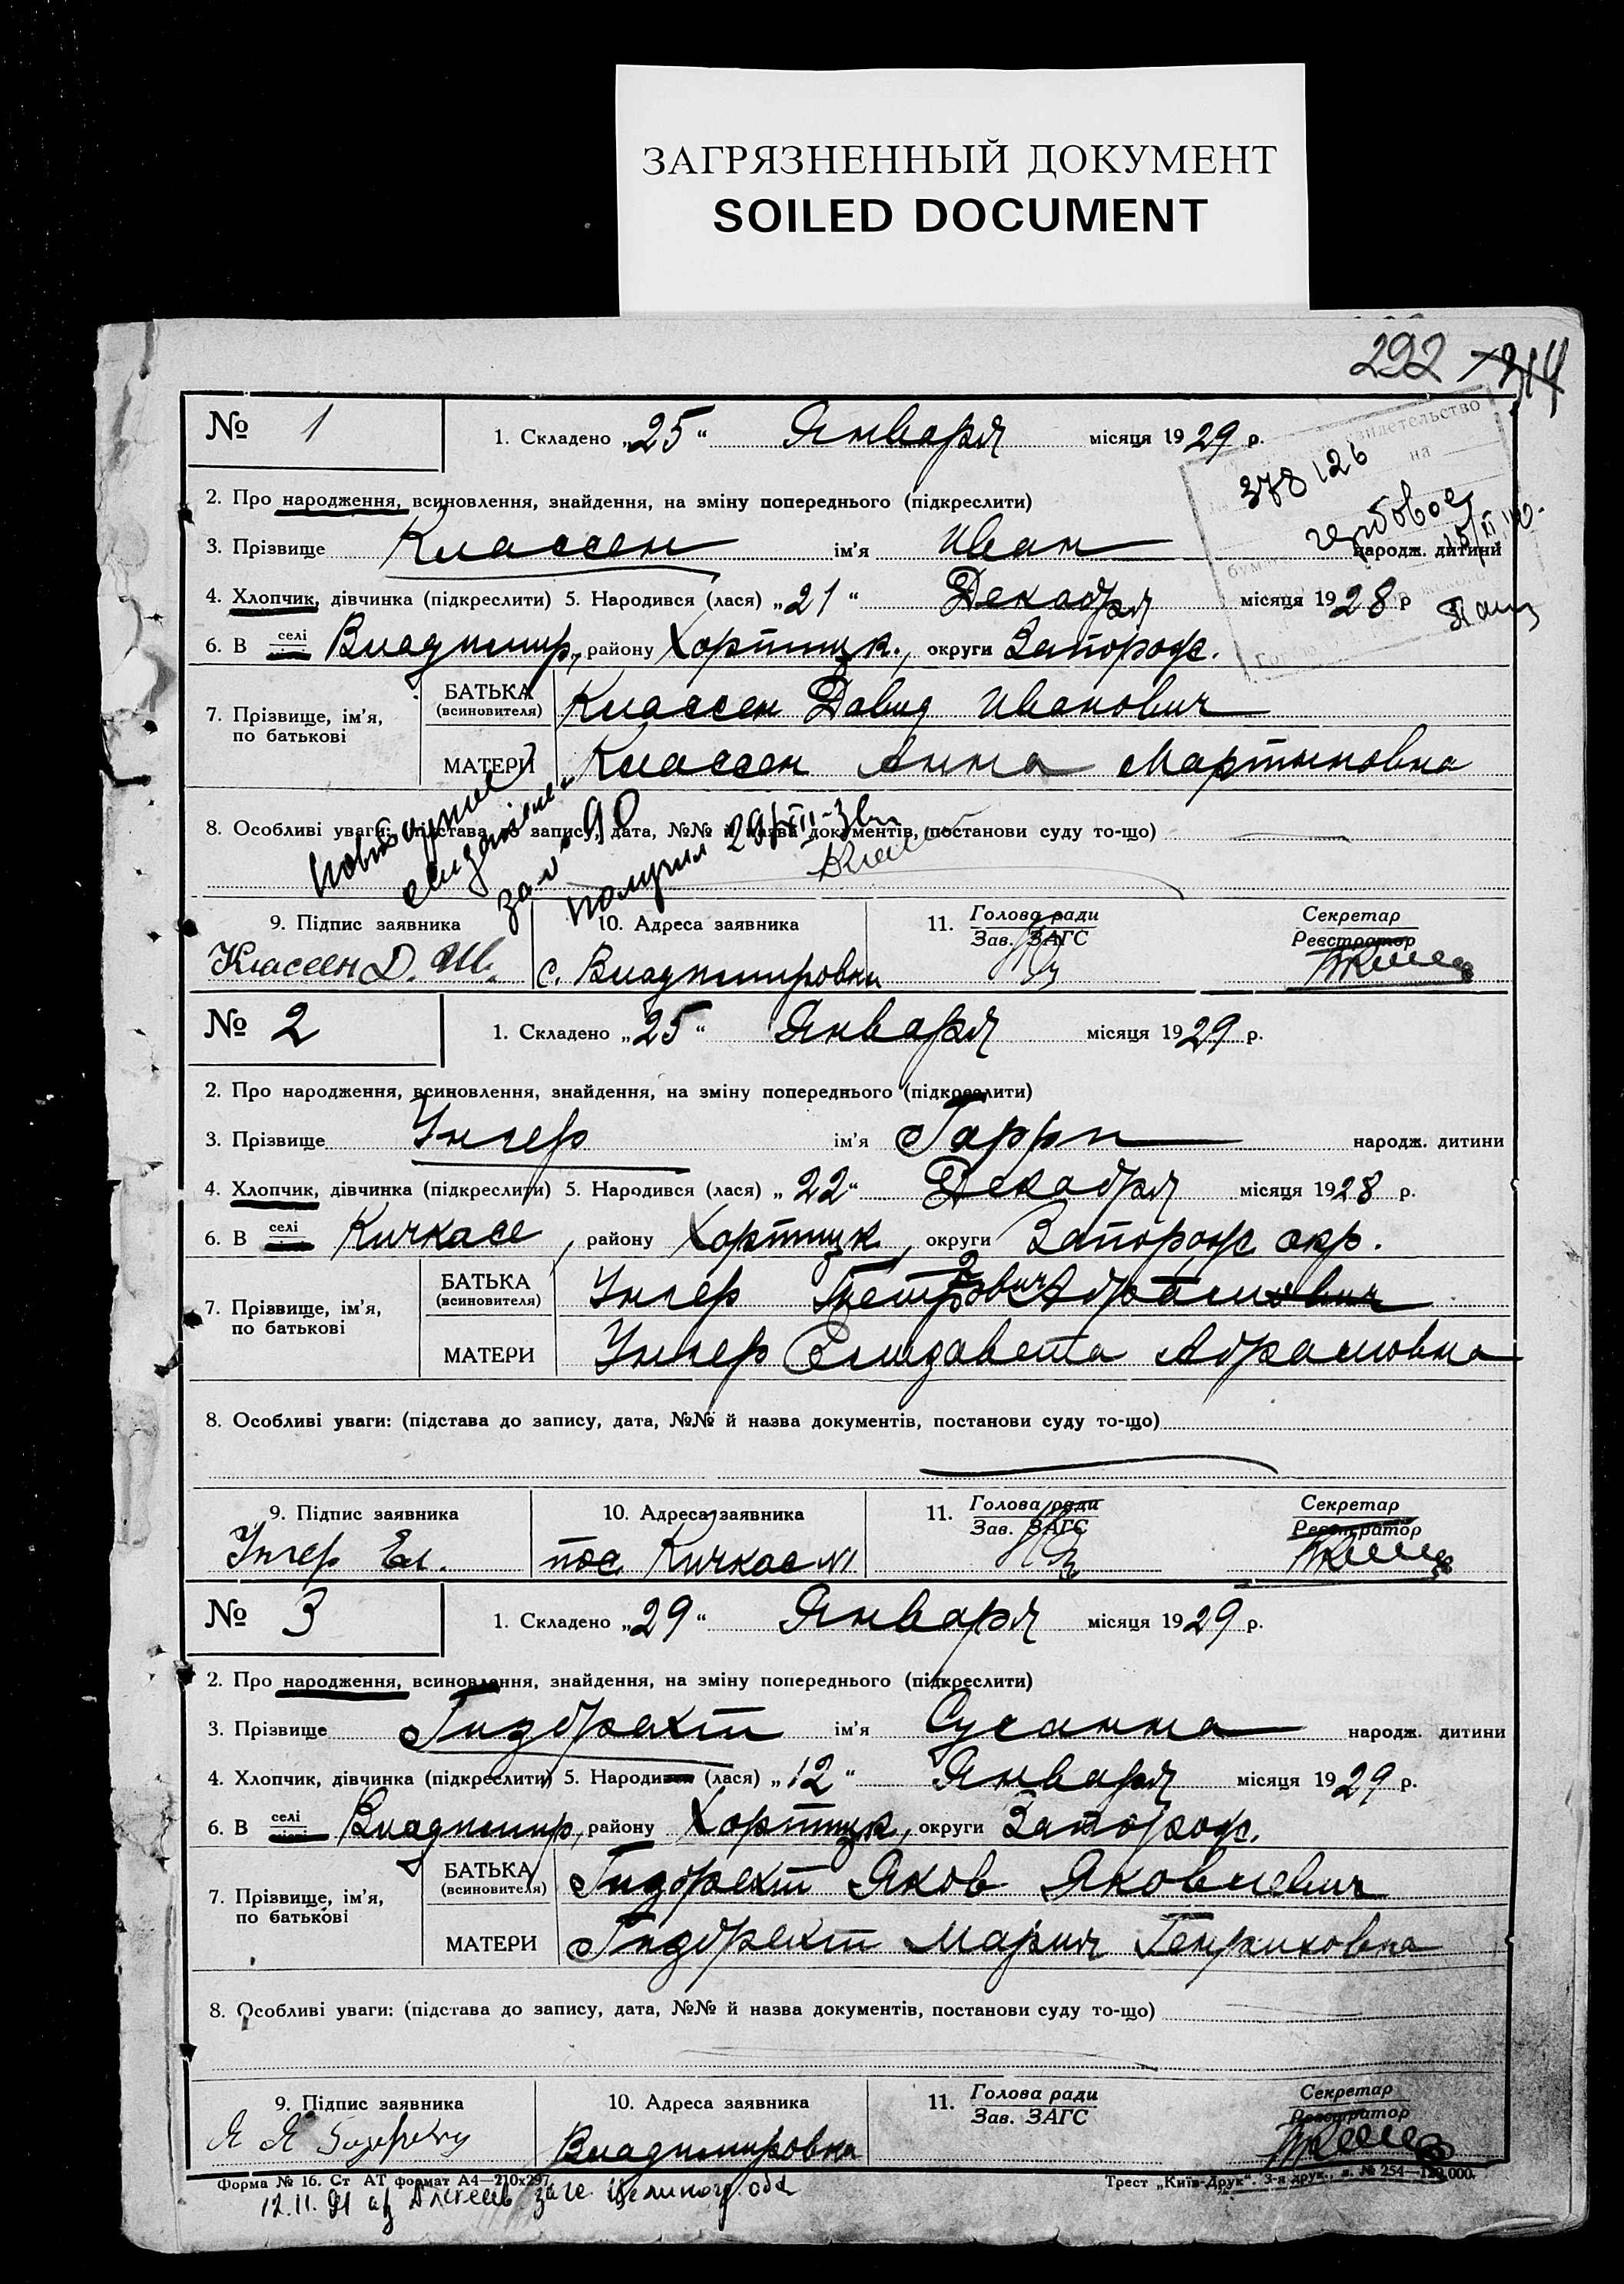 ЗАГРЯЗНЕННЫЙ ДОКУМЕНТ
SOILED DOCUMENT
292 314
№ 1
1. Складено „25“ Января місяця 1929 р.
свидетельство
378126 на
гербовое
2. Про народження, всиновлення, знайдення, на зміну попереднього (підкреслити)
3. Прізвище Классен ім'я Иван народж. дитини
4. Хлопчик, дівчинка (підкреслити) 5. Народився (лася) „21“ Декабря місяця 1928 р
6. В селі Владимир., району Хортицк., округи Запорож.
7. Прізвище, ім'я, по батькові
БАТЬКА (всиновителя) Классен Давид Иванович
МАТЕРИ Классен Анна Мартыновна
8. Особливі уваги: (підстава до запису, дата, №№ й назва документів, постанови суду то-що)
за № 90
получил
9. Підпис заявника
10. Адреса заявника
11. Голова ради
Зав. ЗАГС
Секретар
Реєстратор
Классен Д. И.
с. Владимировка
№ 2
1. Складено „25“ Января місяця 1929 р.
2. Про народження, всиновлення, знайдення, на зміну попереднього (підкреслити)
3. Прізвище Унгер ім'я Гарри народж. дитини
4. Хлопчик, дівчинка (підкреслити) 5. Народився (лася) „22“ Декабря місяця 1928 р.
6. В селі Кичкасе, району Хортицк, округи Запорож окр.
7. Прізвище, ім'я, по батькові
БАТЬКА (всиновителя) Унгер Петрович Абрамович
МАТЕРИ Унгер Елизавета Абрамовна
8. Особливі уваги: (підстава до запису, дата, №№ й назва документів, постанови суду то-що)
9. Підпис заявника
10. Адреса заявника
11. Голова ради
Зав. ЗАГС
Секретар
Реєстратор
Унгер Ел.
пос. Кичкас №1
№ 3
1. Складено „29“ Января місяця 1929 р.
2. Про народження, всиновлення, знайдення, на зміну попереднього (підкреслити)
3. Прізвище Гизбрехт ім'я Сусанна народж. дитини
4. Хлопчик, дівчинка (підкреслити) 5. Народився (лася) „12“ Января місяця 1929 р.
6. В селі Владимир, району Хортицк., округи Запорож.
7. Прізвище, ім'я, по батькові
БАТЬКА (всиновителя) Гизбрехт Яков Яковлевич
МАТЕРИ Гизбрехт Мария Генриховна
8. Особливі уваги: (підстава до запису, дата, №№ й назва документів, постанови суду то-що)
9. Підпис заявника
10. Адреса заявника
11. Голова ради
Зав. ЗАГС
Секретар
Реєстратор
Я Я Гизбрехт
Владимировка
Форма № 16. Ст АТ формат А4—210х297.
Трест „Київ-Друк“. 3-я друк., з. № 254—
12.11.91 загс Целиногр. обл